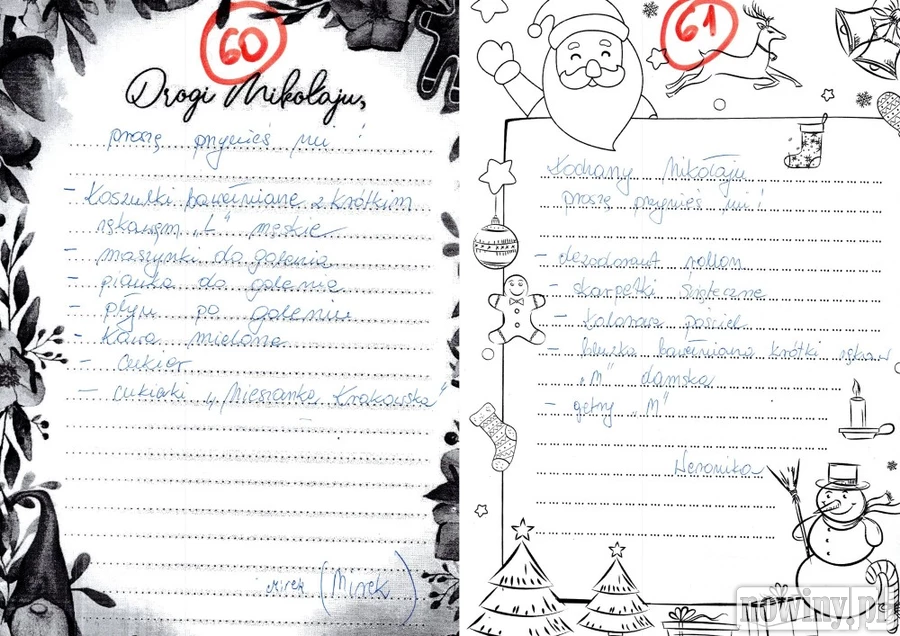 60
Drogi Mikołaju,
proszę przynieś mi!
- Koszulki bawełniane z krótkim
rękawem „L" męskie
- maszynki do golenia
- pianka do golenia
- płyn po goleniu
- Kawa mielona
- cukier
- cukierki „Mieszanka Krakowska"
Mirek (Mirek)
61
Kochany Mikołaju
proszę przynieś mi!
- dezodorant rollon
- skarpetki świąteczne
- Kolorowa pościel
- bluzka bawełniana krótki rękaw
„M" damska
- getry „M"
Weronika
nowiny.pl